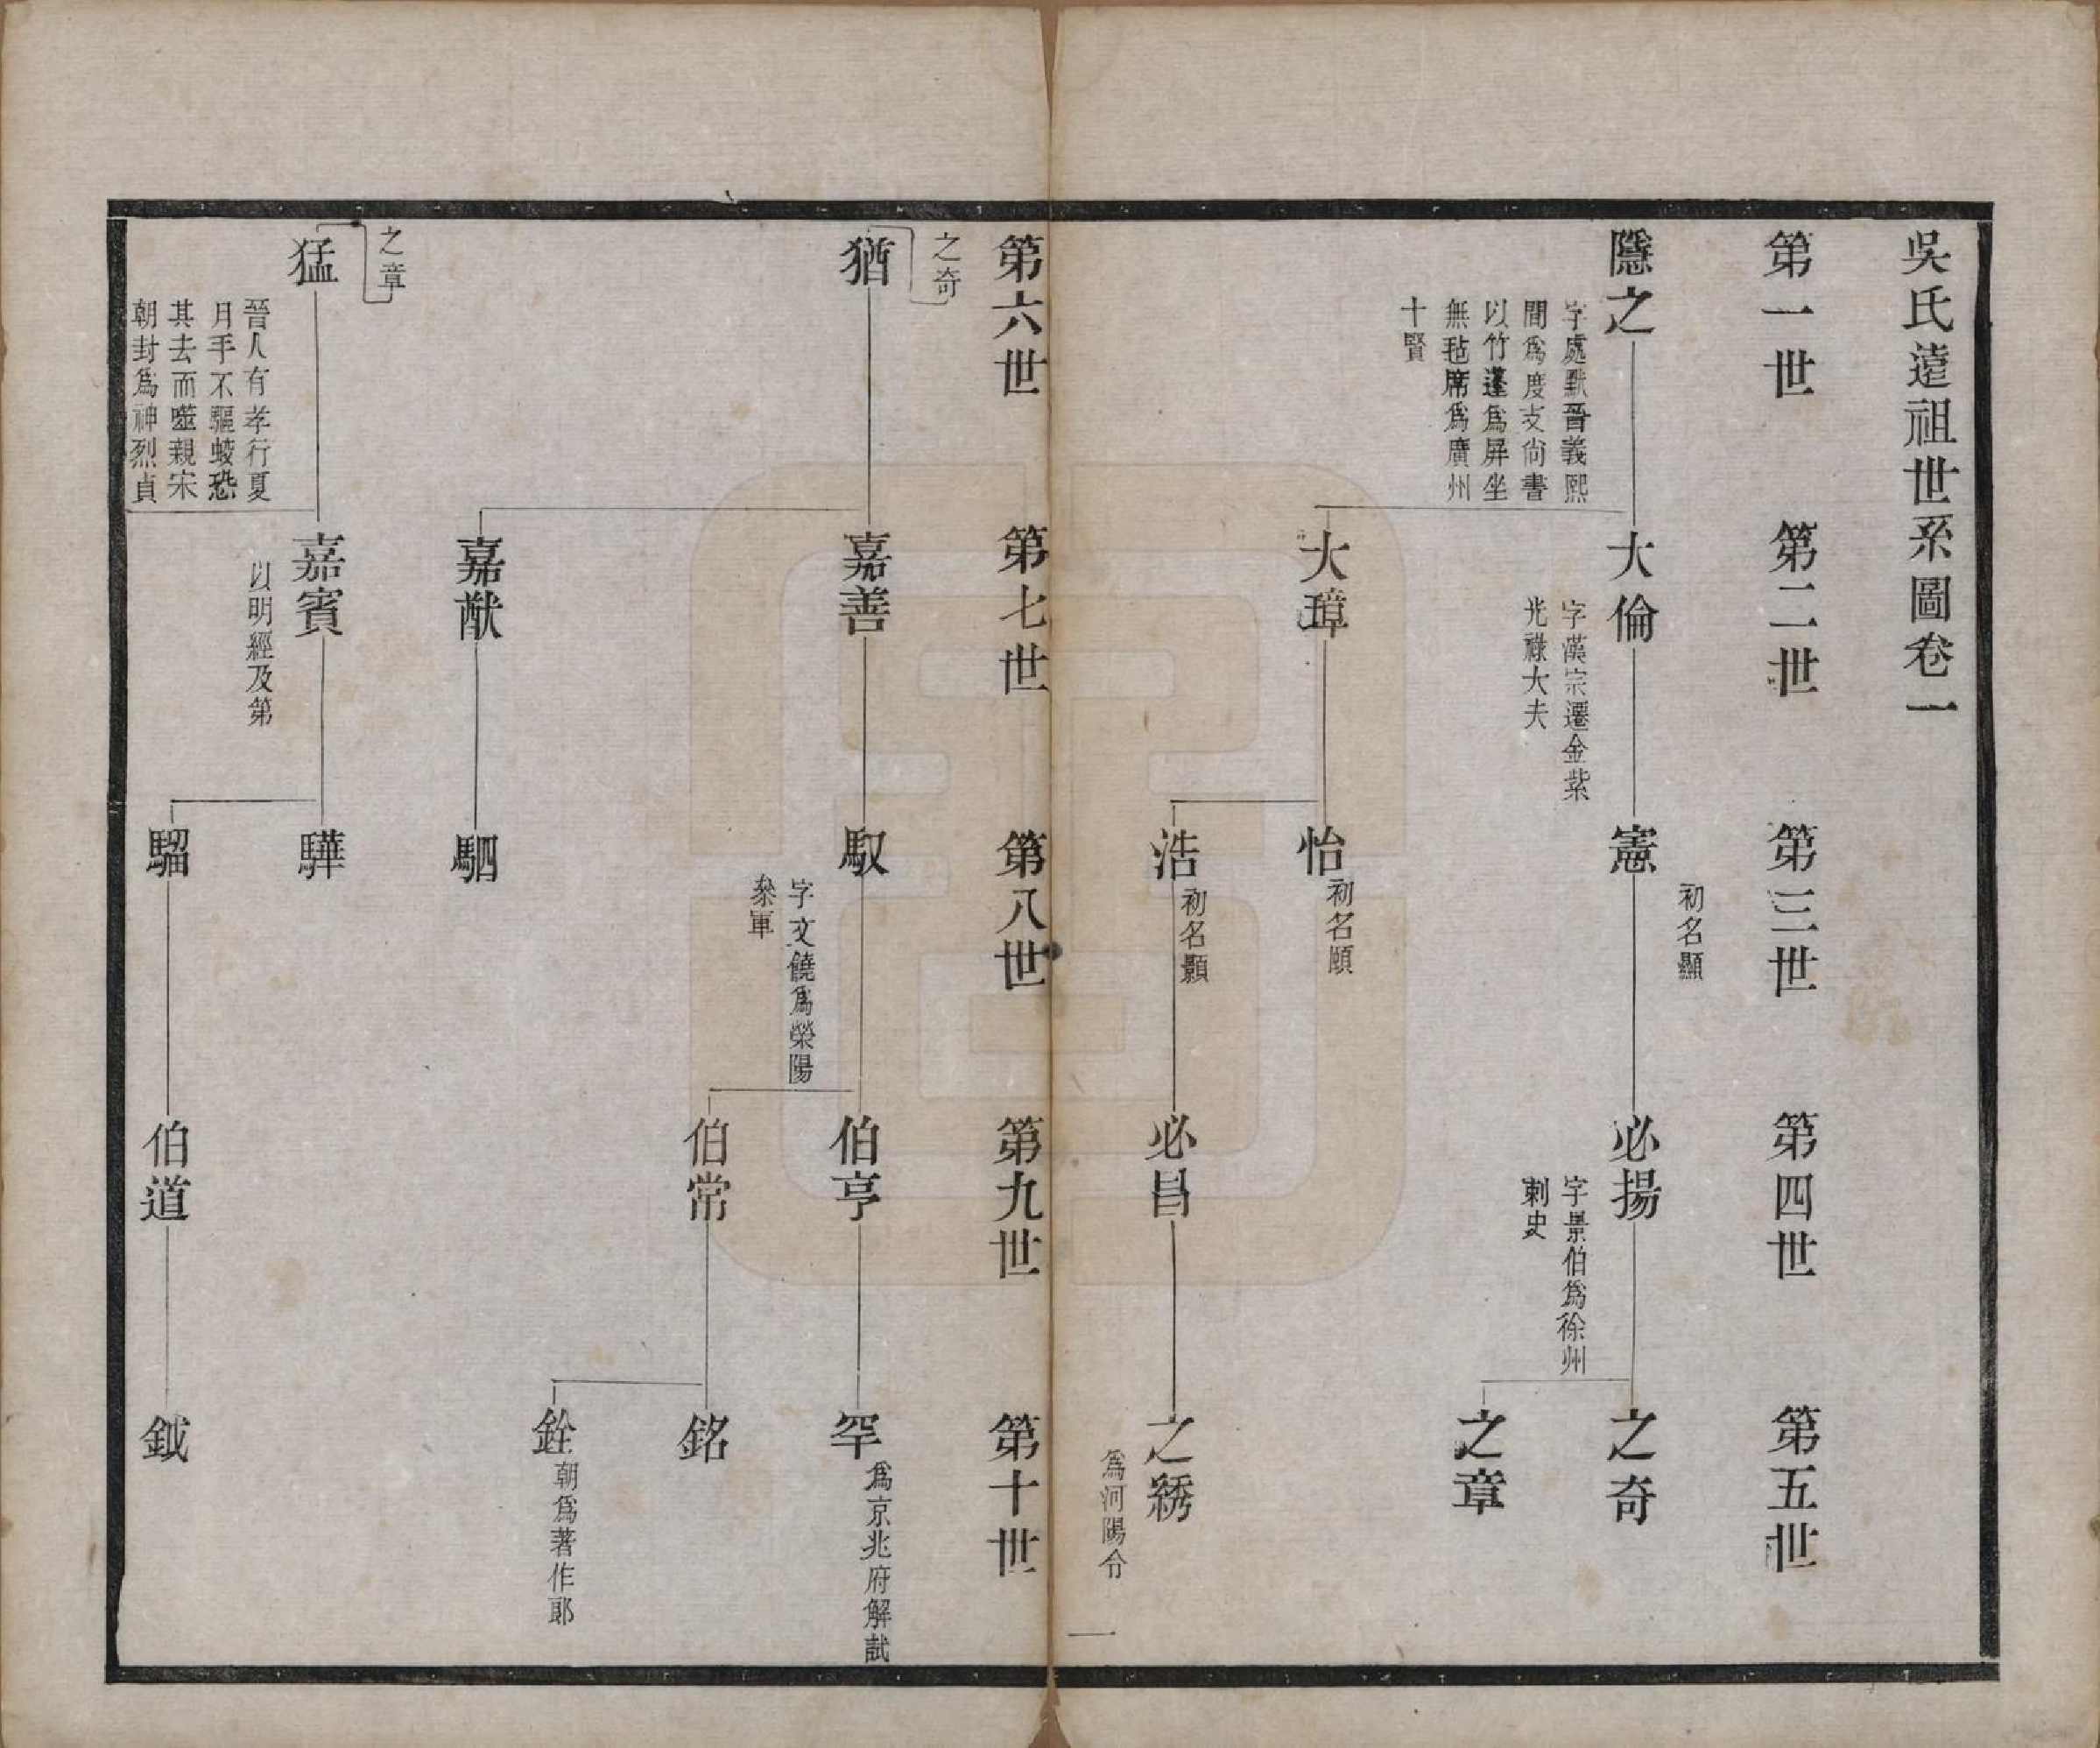 吳氏遠祖世系圖卷一
第一世
第二世
第三世
第四世
第五世
隱之
字處默晉義熙
間爲度支尚書
以竹蓬爲屏坐
無毡席爲廣州
十賢
大倫
字漢宗遷金紫
光祿大夫
憲
初名顯
必揚
字景伯爲徐州
刺史
之奇
之章
大璋
怡
初名頤
浩
初名顥
必昌
之綉
爲河陽令
一
第六世
第七世
第八世
第九世
第十世
之奇
猶
嘉善
馭
字文饒爲滎陽
叅軍
伯亨
罕
爲京兆府解試
伯常
銘
銓
朝爲著作郎
嘉猷
駟
之章
猛
晉人有孝行夏
月手不驅蚊恐
其去而噬親宋
朝封爲神烈貞
嘉賓
以明經及第
驊
騮
伯道
鉞